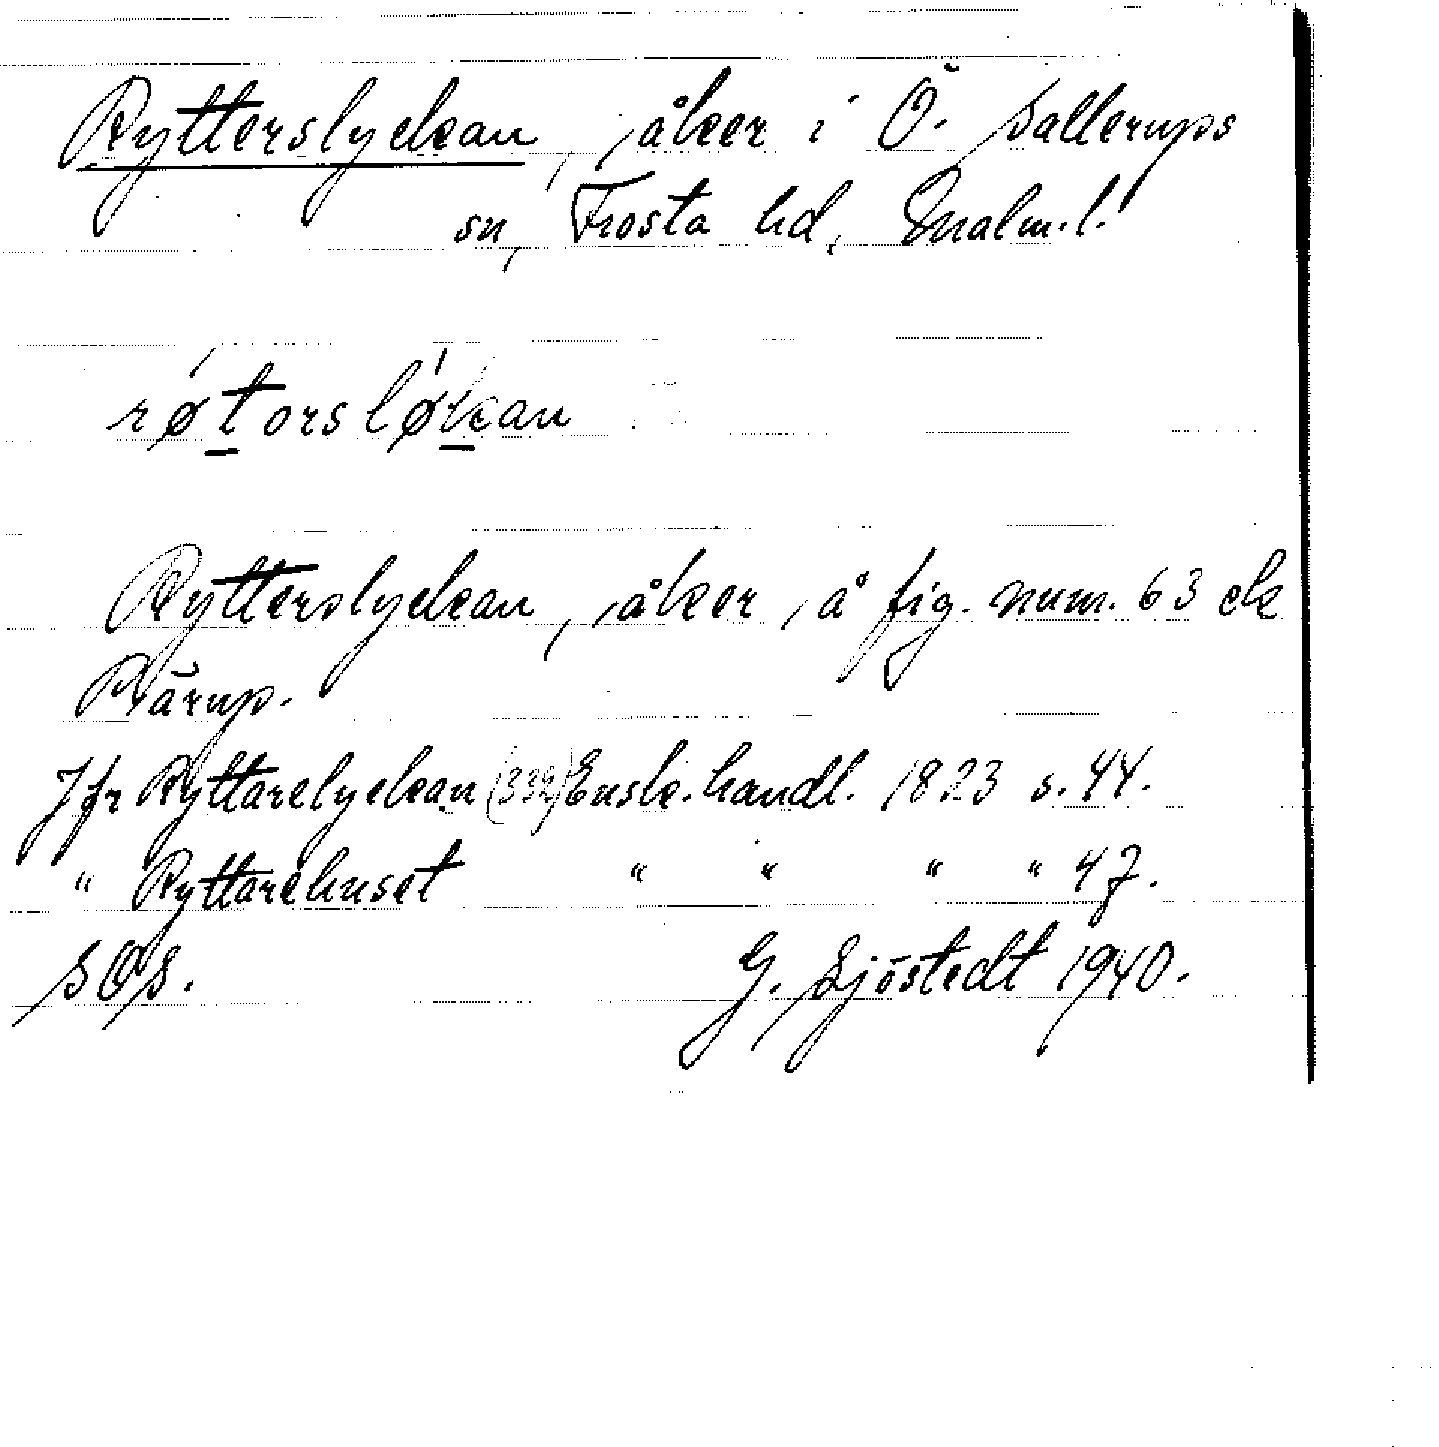 Rytterslyckan, åker i Ö. Sallerups
sn, Frosta hd, Malm. l.
røtorsløkan
Rytterslyckan, åker, å fig. num. 63 ek
Rärup.
Jfr Ryttarelyckan (332) Ensk. handl. 1823 s. 44.
" Ryttarehuset " " " " 47.
SOS. G. Sjöstedt 1940.